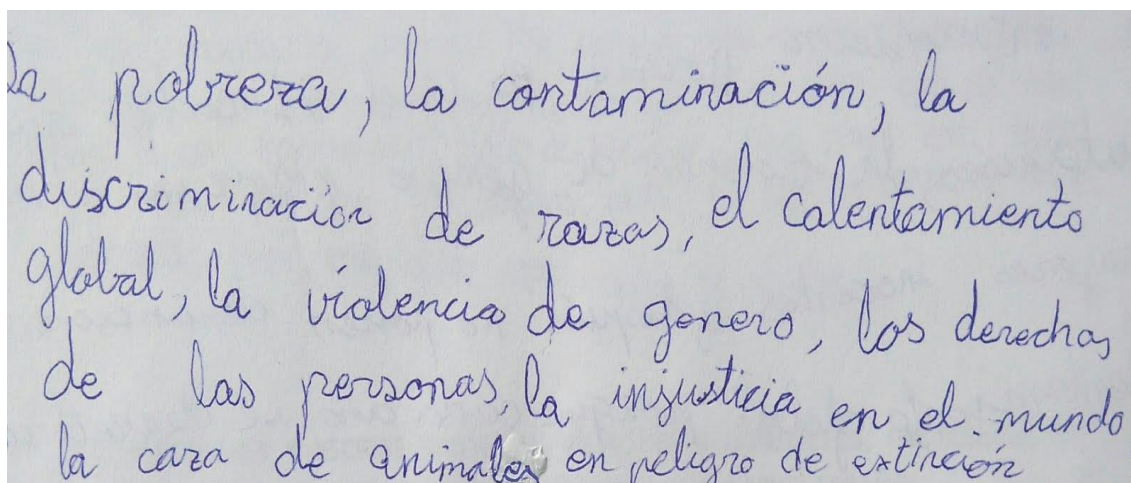 La pobreza, la contaminación, la
discriminación de razas, el calentamiento
global, la violencia de genero, los derechos
de las personas la injusticia en el mundo
la caza de animales en peligro de extinción